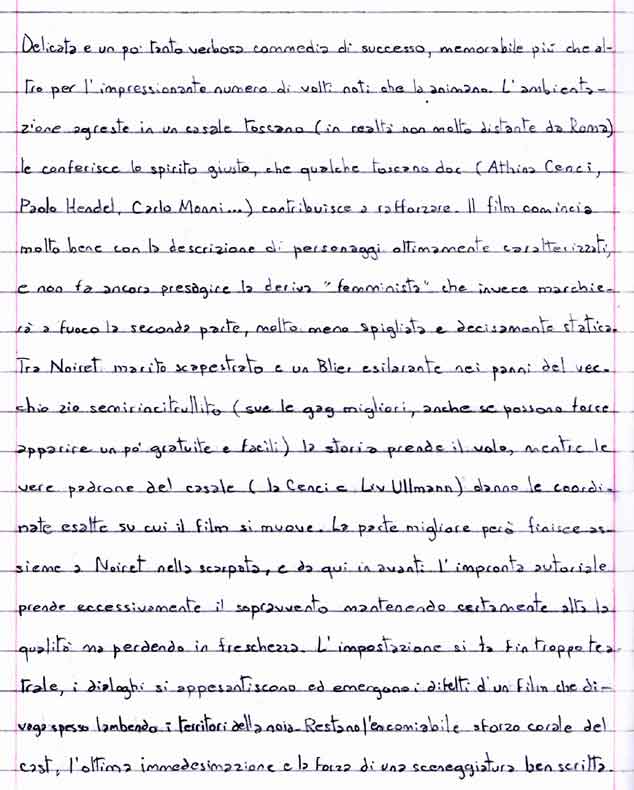 Delicata e un po' tanto verbosa commedia di successo, memorabile più che al-
tro per l'impressionante numero di volti noti che la animano. L'ambienta-
zione agreste in un casale toscano (in realtà non molto distante da Roma)
le conferisce lo spirito giusto, che qualche toscano doc (Athina Cenci,
Paolo Hendel, Carlo Monni...) contribuisce a rafforzare. Il film comincia
molto bene con la descrizione di personaggi ottimamente caratterizzati,
e non fa ancora presagire la deriva "femminista" che invece marchie-
rà a fuoco la seconda parte, molto meno spigliata e decisamente statica.
Tra Noiret marito scapestrato e un Blier esilarante nei panni del vec-
chio zio semirincitrullito (sue le gag migliori, anche se possono forse
apparire un po' gratuite e facili) la storia prende il volo, mentre le
vere padrone del casale (la Cenci e Liv Ullmann) danno le coordi-
nate esatte su cui il film si muove. La parte migliore però finisce as-
sieme a Noiret nella scarpata, e da qui in avanti l'impronta autoriale
prende eccessivamente il sopravvento mantenendo certamente alta la
qualità ma perdendo in freschezza. L'impostazione si fa fin troppo tea-
trale, i dialoghi si appesantiscono ed emergono i difetti d'un film che di-
vaga spesso lambendo i territori della noia. Restano l'encomiabile sforzo corale del
cast, l'ottima immedesimazione e la forza di una sceneggiatura ben scritta.